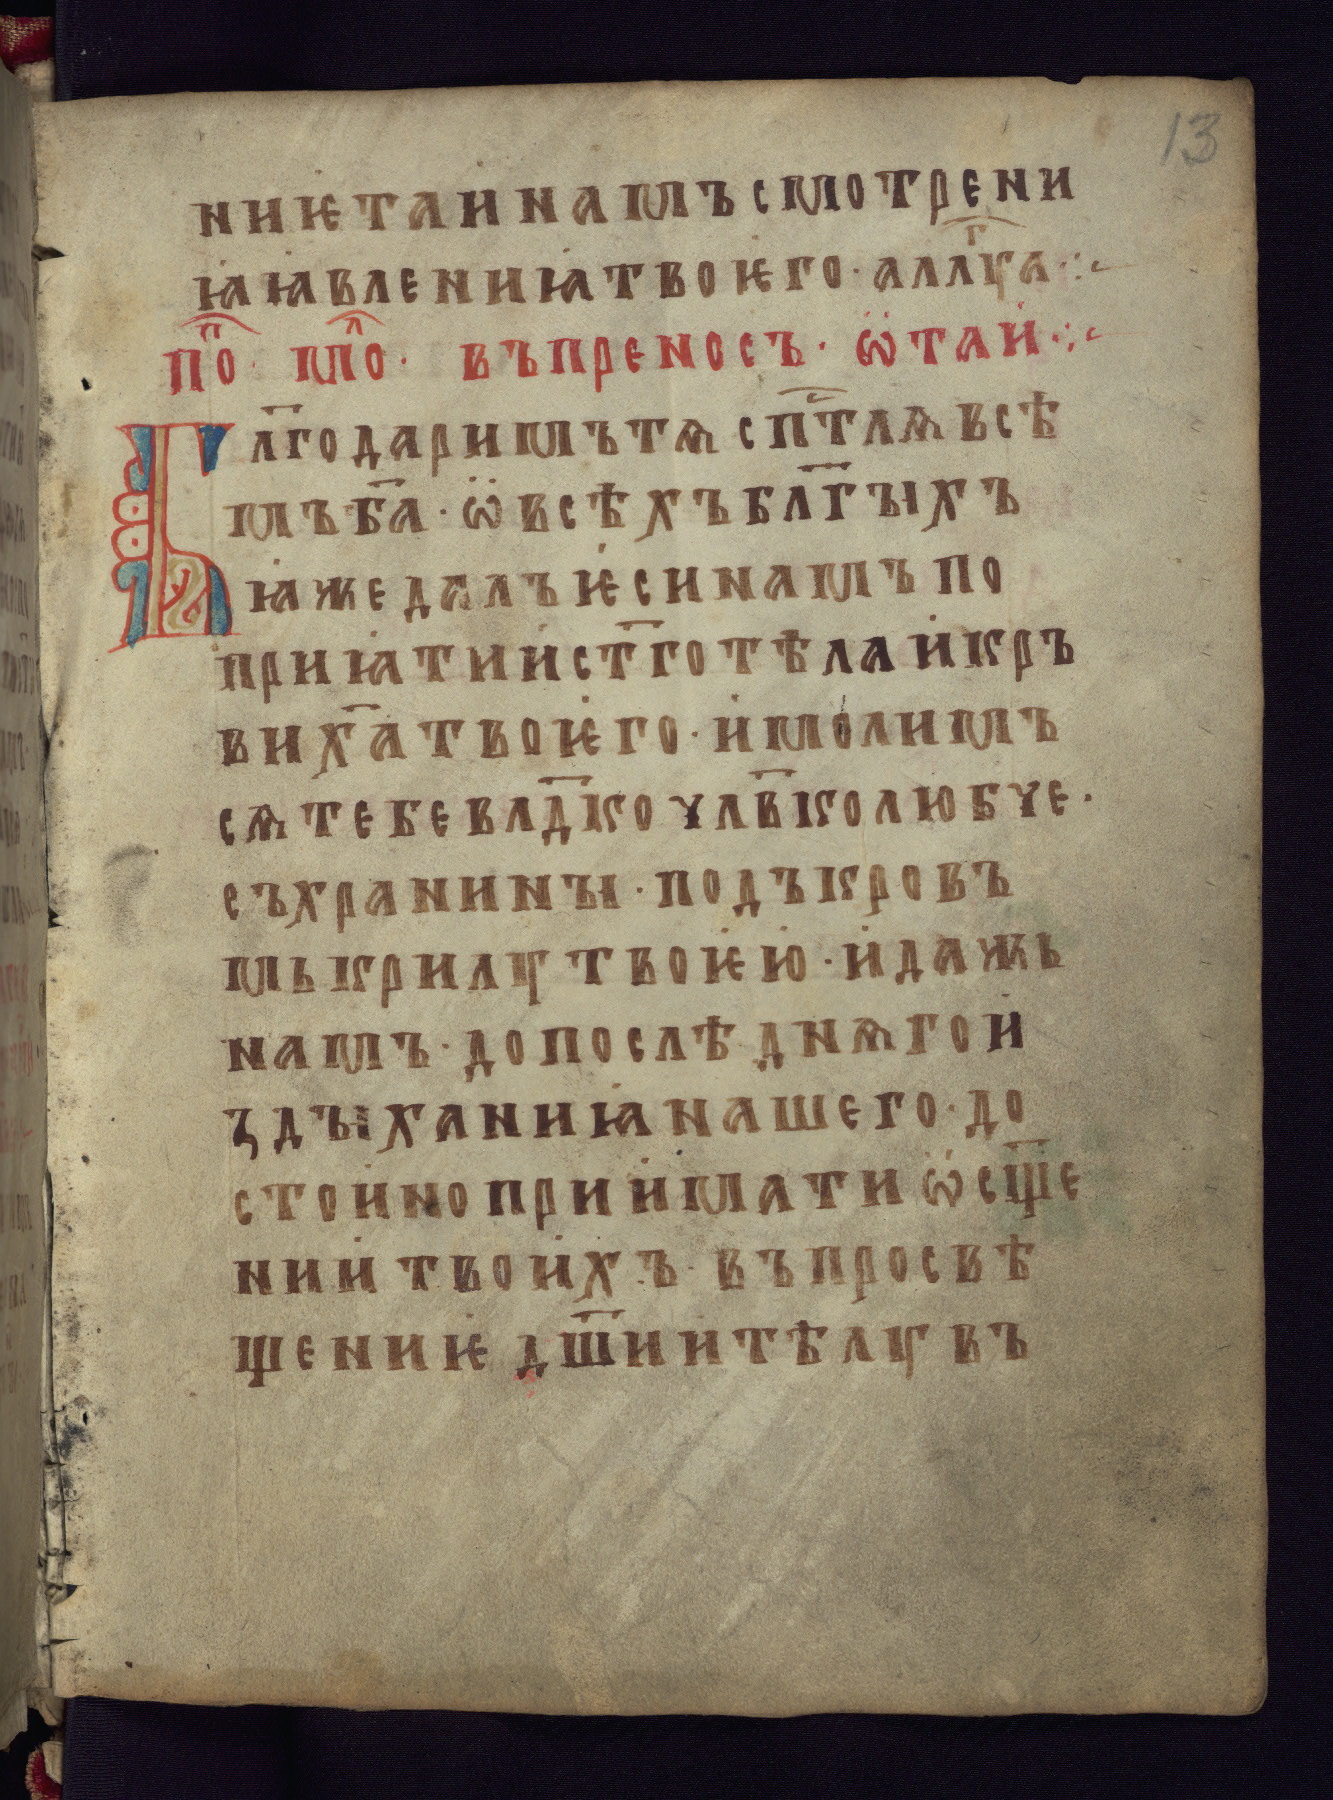 13
ниѥтаинамъсмотрени
ꙗꙗвлениꙗтвоѥго· аллꙋг҃а ⁘
по̑п· мо̑л· въпреносъ· ѿтаи ⁘
Бл҃годаримътѧ сп҃стлѧвсѣ
мъб҃а· ѡвсѣхъбл҃гꙑхъ
ꙗжедалъѥсинамъпо
приꙗтиист҃готѣлаикръ
вих҃атвоѥго· имолимъ
сѧтебевлд҃кочл҃вколюбче·
съхранинꙑ· подъкровъ
мькрилꙋтвоѥю· идажь
намъ· допослѣднѧгои
здꙑханиꙗнашего· до
стоиноприиматиѡсщ҃е
ниитвоихъ· въпросвѣ
щениѥ дш҃иитѣлꙋ въ